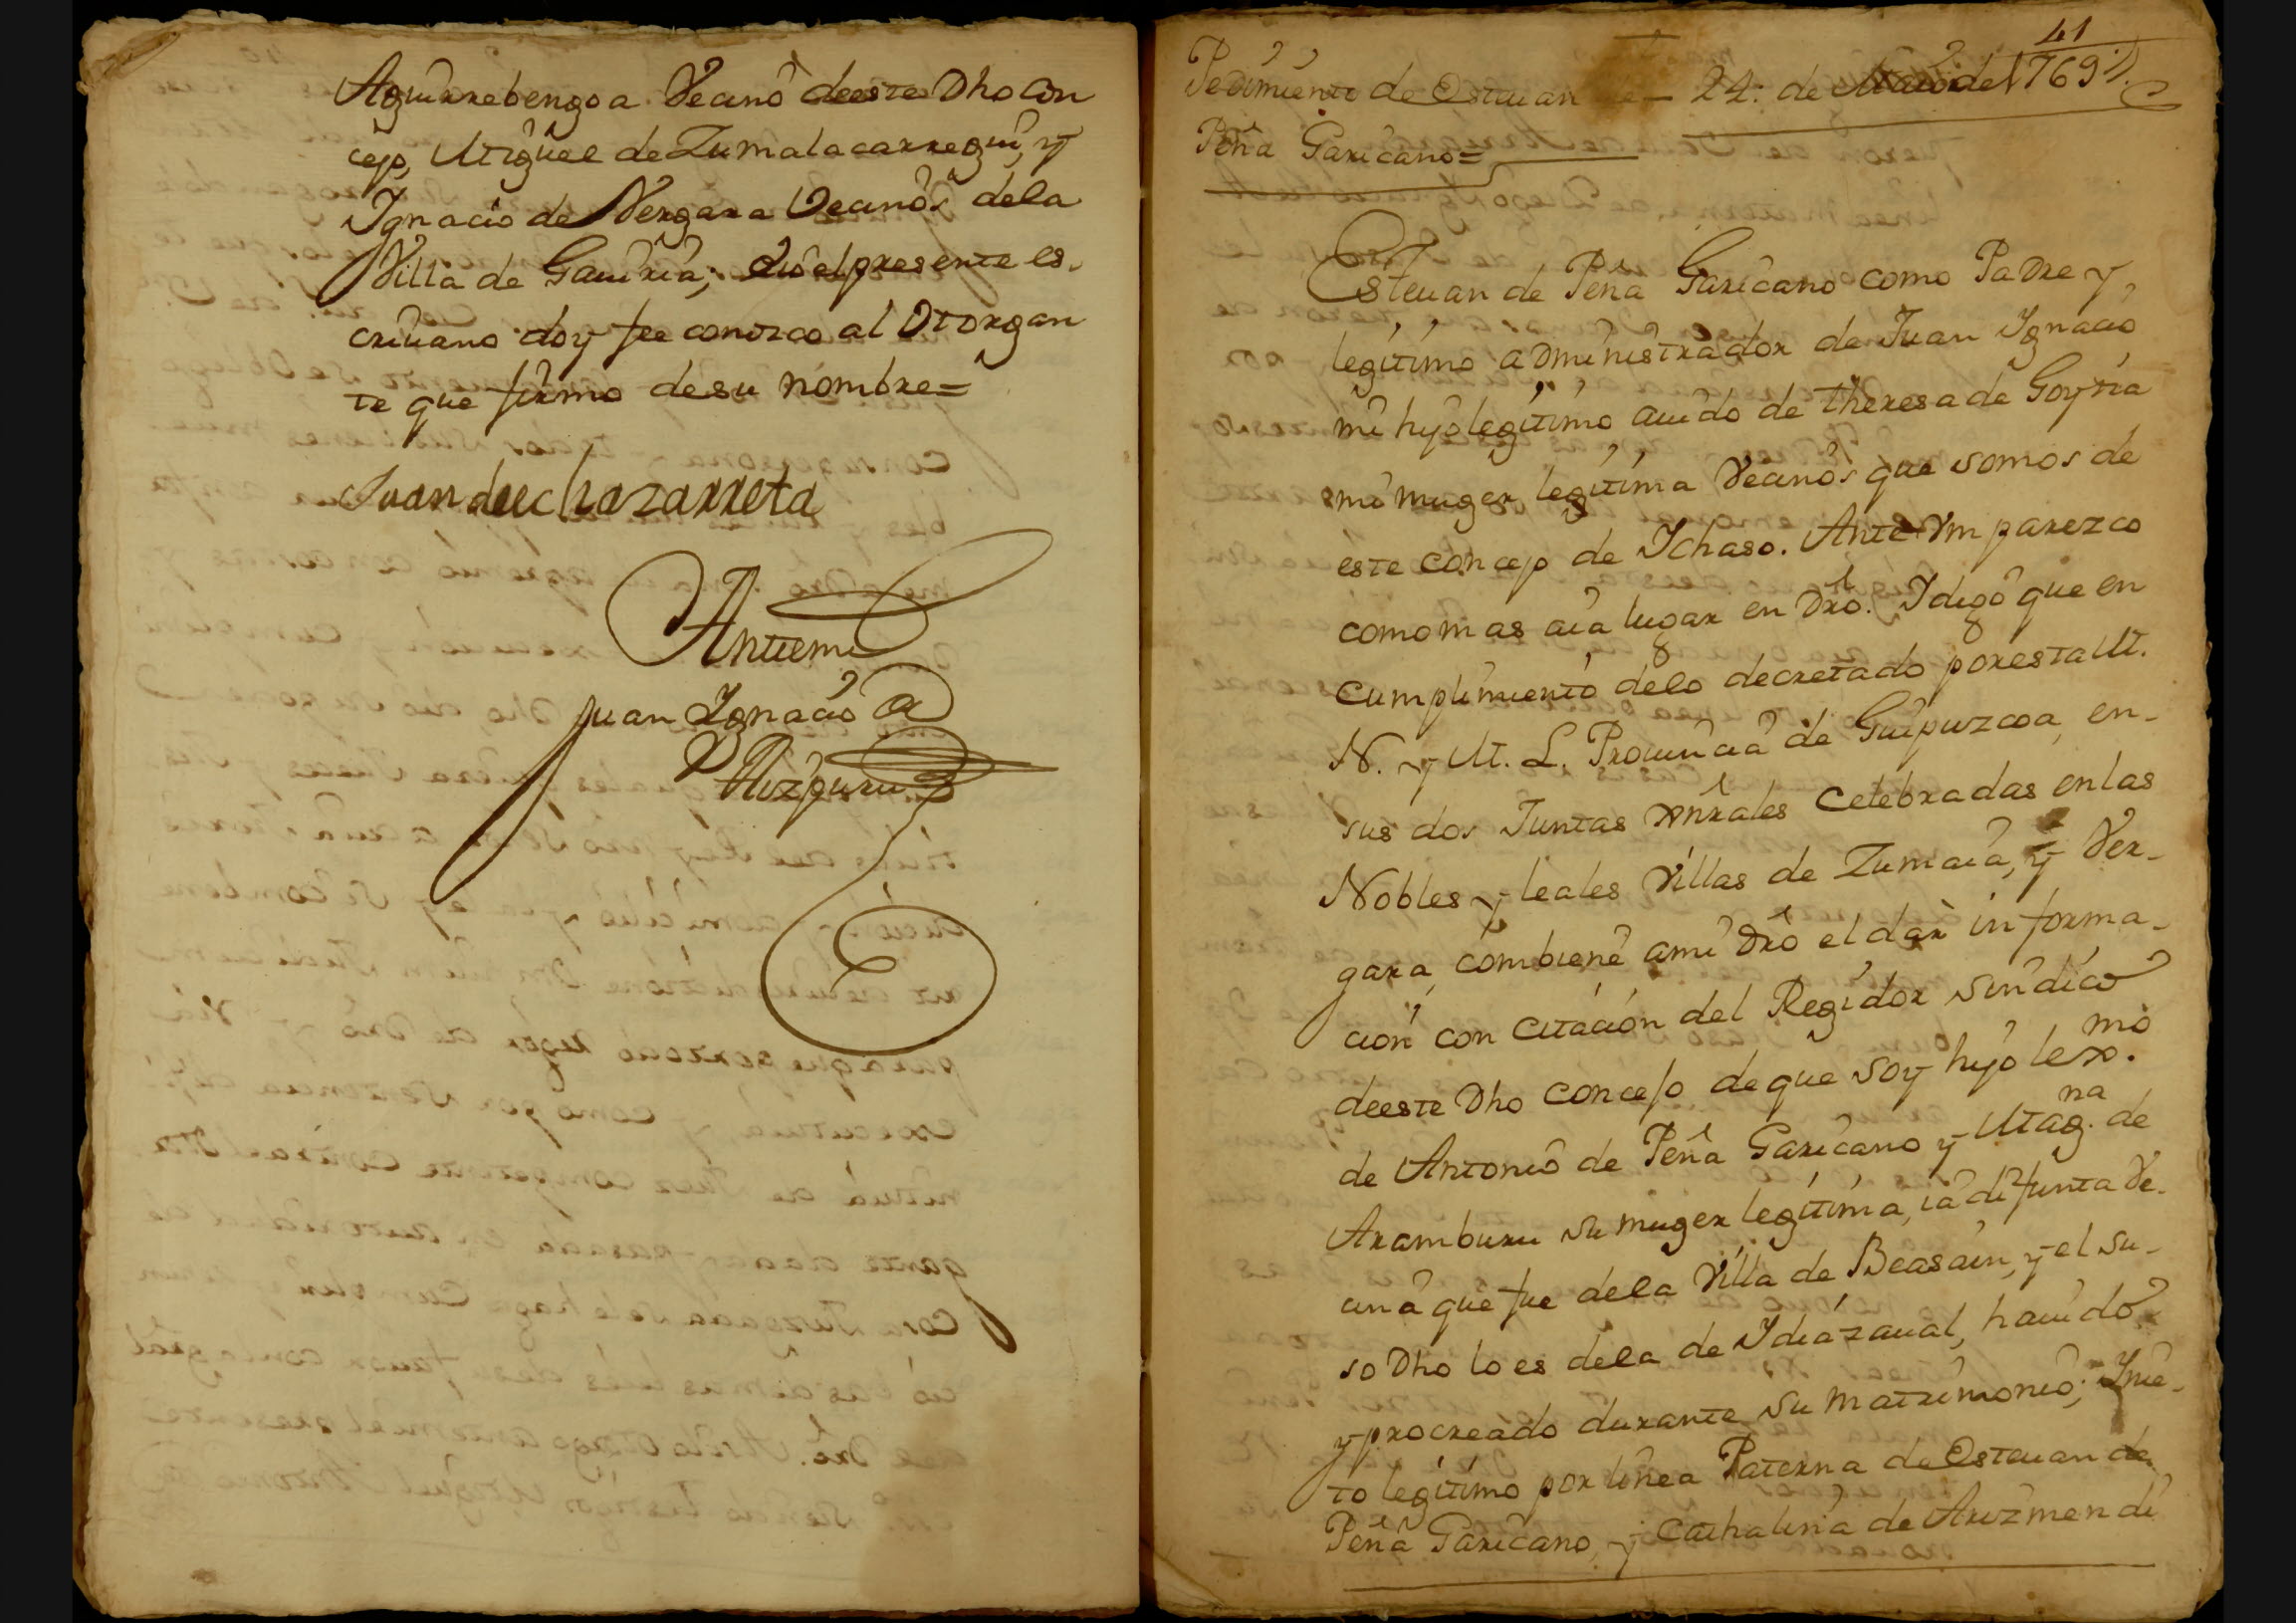 Aguirrebengoa Vecino deeste Dho Con
cejo, Miguel de Zumalacarregui, y
Ignacio de Vergara Vecinos dela
Villa de Gauiria; Dio el presente es-
criuano doy fee conozco al Otorgan
te que firmo desu nombre=
Juan de echazarreta
Antemi
Juan Ignacio de
Aizpuru
41
Pedimiento de Esteuan de — 24: de Maio de 1769.
Peña Garicano=
Esteuan de Peña Garicano como Padre y
legitimo administrador de Juan Ignacio
mi hijo legitimo auido de theresa de Goytia
mi muger legitima Vecinos que somos de
este concejo de Ichaso. Ante Vm parezco
como mas aia lugar en Dro. I digo que en
cumplimiento delo decretado por esta M.
N. y M. L. Prouincia de Guipuzcoa, en-
sus dos Juntas xnrales Celebradas en las
Nobles y leales Villas de Zumaia, y Ver-
gara, combiene ami Dro el dar informa-
cion con Citacion del Regidor sindico
deeste Dho concejo de que soy hijo lexmo.
de Antonio de Peña Garicano y Magna. de
Aramburu su muger legitima, ia difunta Ve-
cina que fue dela Villa de Beasain, y el su-
so Dho lo es dela de Idiazaual, hauido
y procreado durante su matrimonio; Inie-
to legitimo por linea Paterna de Esteuan de
Peña Garicano, y Cathalina de Arizmendi